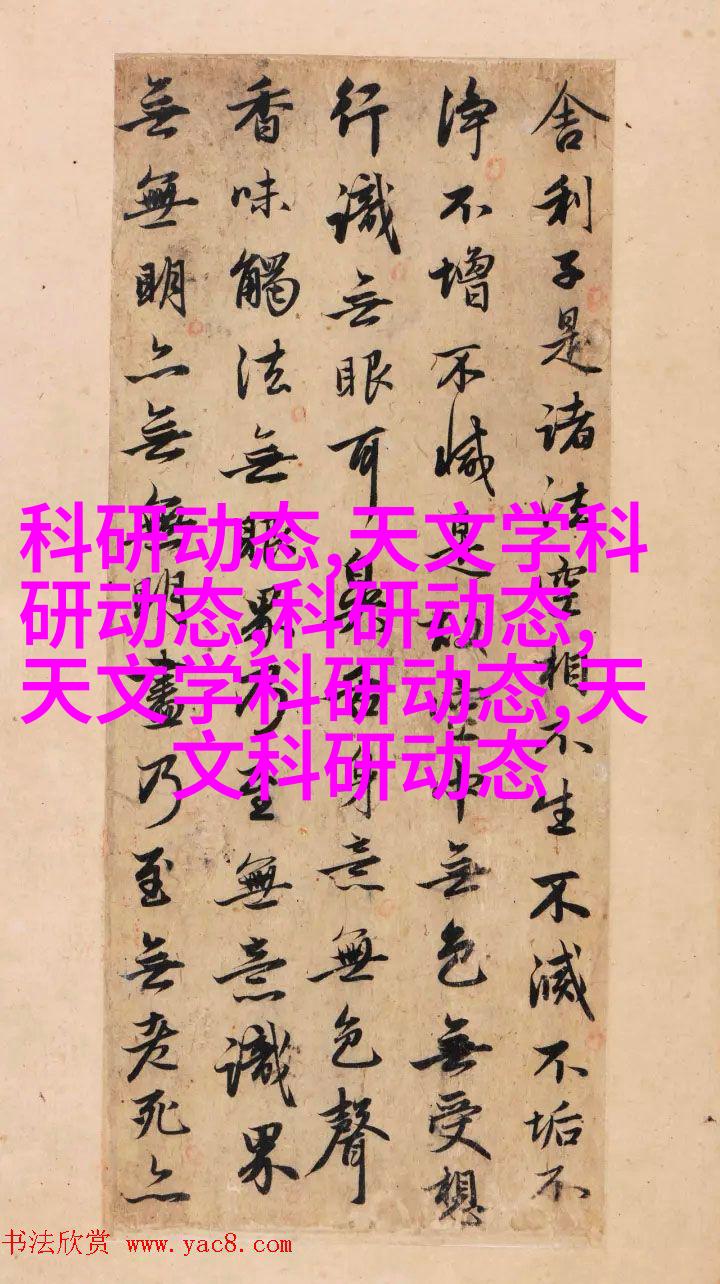 舍利子是諸法空相不生不滅不垢不
淨不增不減是故空中無色無受想
行識無眼耳鼻舌身意無色聲
香味觸法無眼界乃至無意識界
無無明亦無無明盡乃至無老死亦
科研动态,天文学科
研动态,科研动态,
天文学科研动态,天
文科研动态
书法欣赏 www.yac8.com